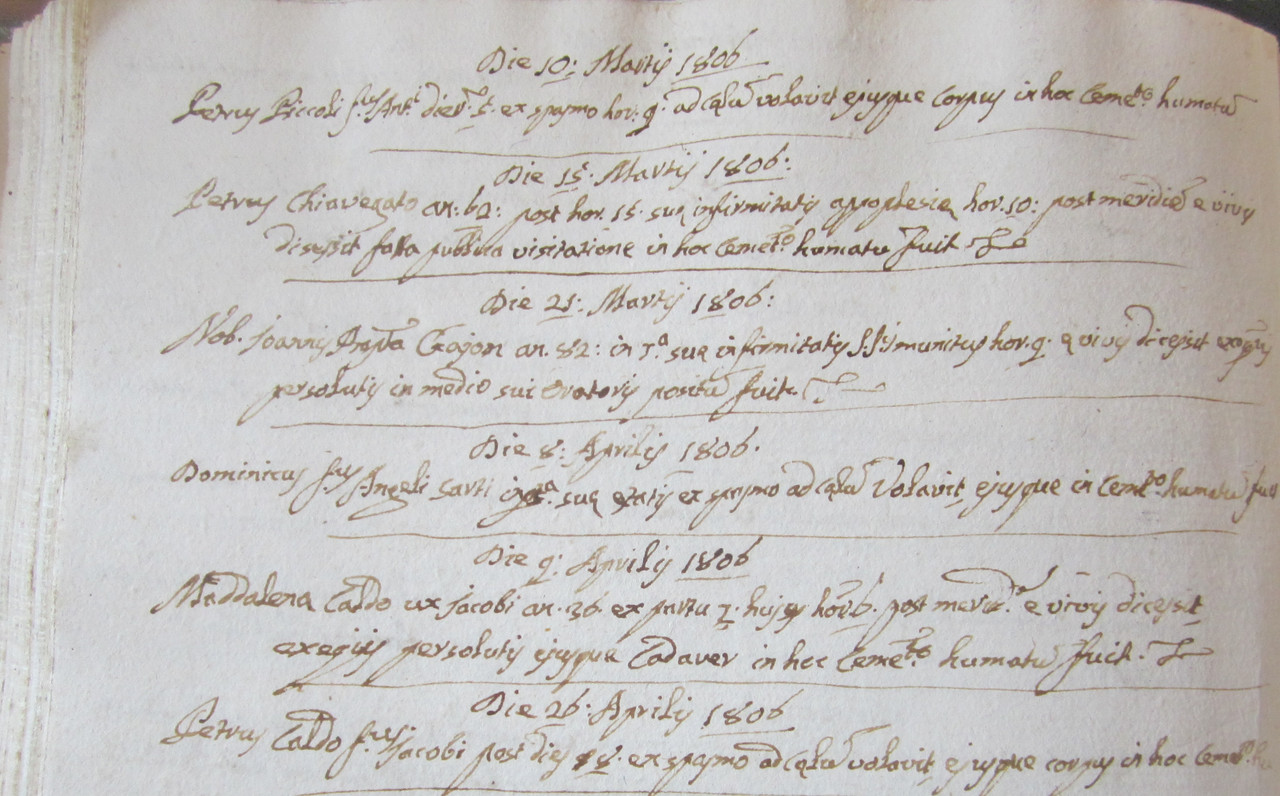 Die 10: Martij 1806
Petrus Piccoli f.us Ant.i dier. 5. ex spasmo hor. 9. ad cęlū volavit ejusque corpus in hoc Cemet.o humatū
Die 15. Martij 1806.
Petrus Chiavegato an: 62: post hor. 15. suę infirmitatis appoplesię hor. 10: post meridiē e vivis
discessit facta publica visitatione in hoc Cemet.o humatū fuit
Die 21: Martij 1806:
Nob. Joannis Bapta an. 82: in 7.a suę infirmitatis S.S. munitus hor. 9. e vivis dicessit exequijs
persolutis in medio sui Oratorij positū fuit.
Die 8: Aprilis 1806.
Dominicus f.us Angeli Sarti suę ętatis ex spasmo ad cęlū Volavit, ejusque in Cemet.o humatū fuit
Die 9: Aprilis 1806
Maddalena Caldo ux Jacobi an. 26. ex partu 7. hujus hor. 6. post merid. e vivis dicessit
exequijs persolutis ejusque Cadaver in hoc Cemet.o humatū fuit.
Die 26. Aprilis 1806
Petrus Caldo f.us Jacobi post dies 18. ex spasmo ad cęlū volavit, ejusque corpus in hoc Cemet.o